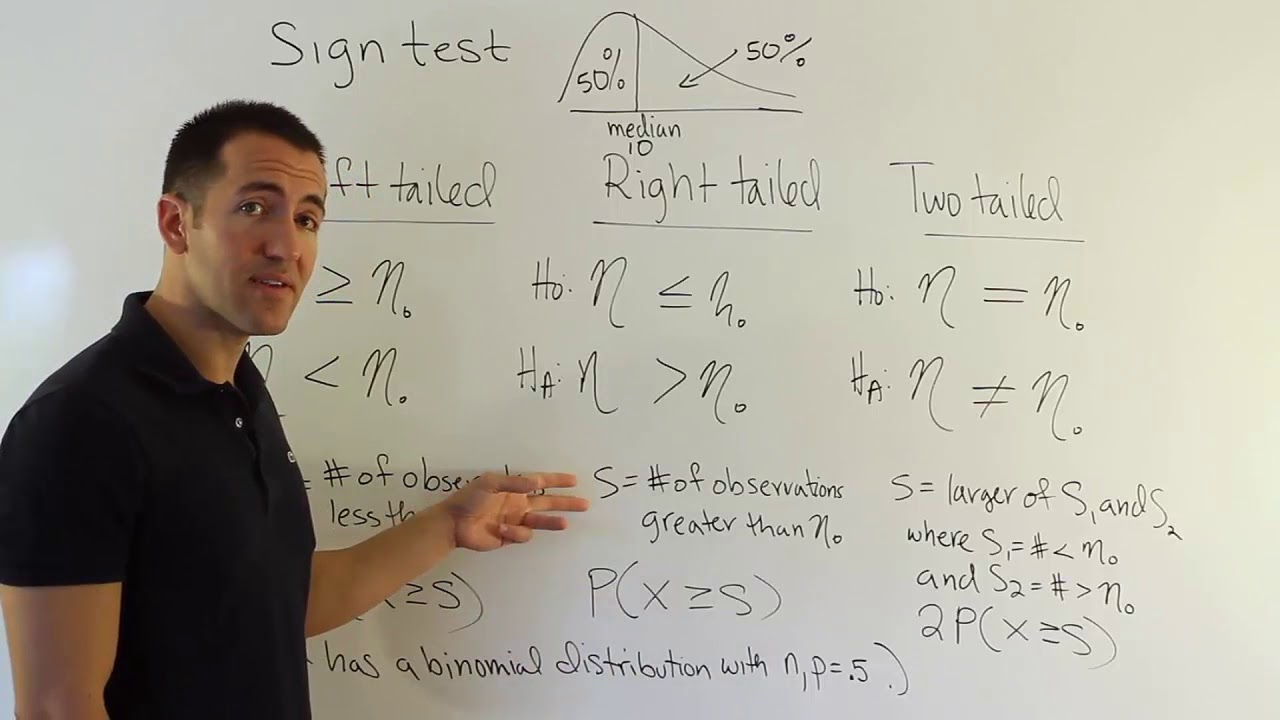 Sign test
50%
50%
median
10
ft tailed
Right tailed
Two tailed
≥ η₀
H₀: η ≤ η₀
H₀: η = η₀
η < η₀
H_A: η > η₀
H_A: η ≠ η₀
= # of
less
S = # of observations
greater than η₀
S = larger of S₁ and S₂
where S₁ = # < η₀
and S₂ = # > η₀
X ≥ S)
P(X ≥ S)
2P(X ≥ S)
has a binomial distribution with n, p = .5 .)